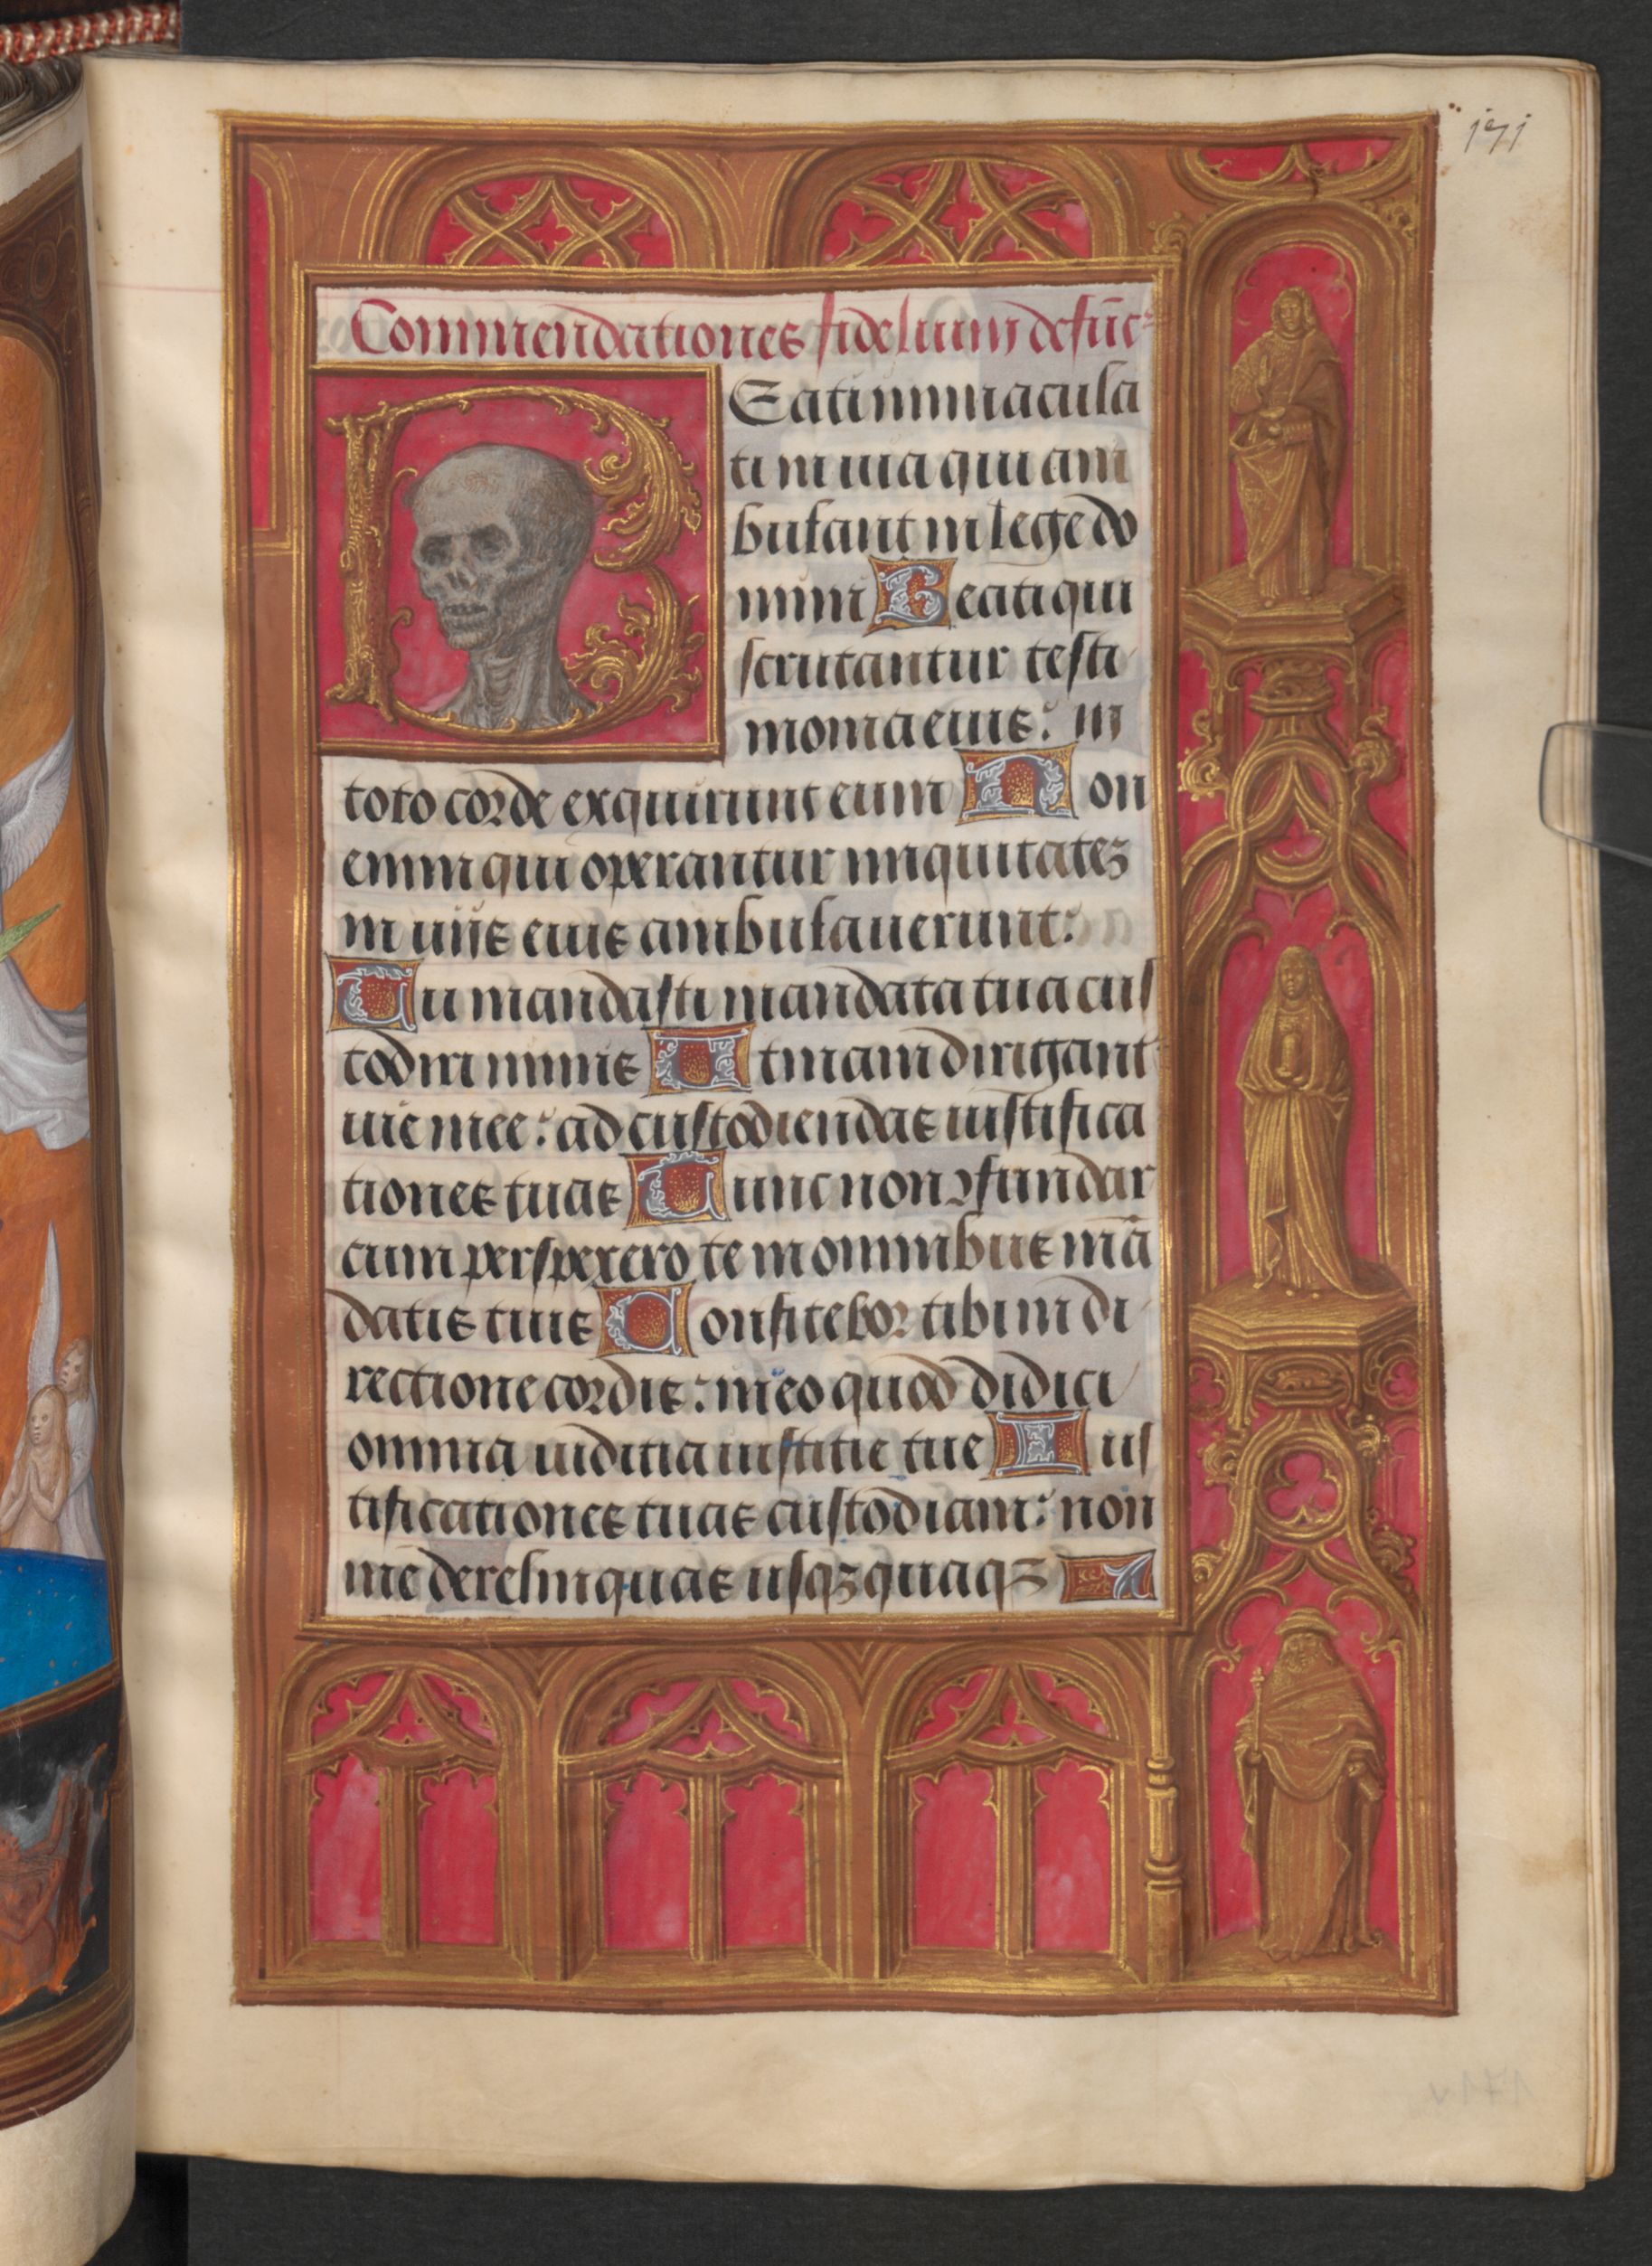 171
Commendationes fidelium defūc⸗
BEati immacula
ti in uia qui am
bulant in lege do
mini Beati qui
scrutantur testi
monia eius: in
toto corde exquirunt eum Non
enim qui operantur iniquitatez
in uiis eius ambulauerunt:
Tu mandasti mandata tua cus
todiri nimis Utinam dirigant̄
uie mee: ad custodiendas iustifica
tiones tuas Tunc non ꝯfundar
cum perspexero te in omnibus mā
datis tuis Confitebor tibi in di
rectione cordis: meo quod didici
omnia iuditia iustitie tue Ius
tificationes tuas custodiam: non
me derelinquas usqꝫquaqꝫ